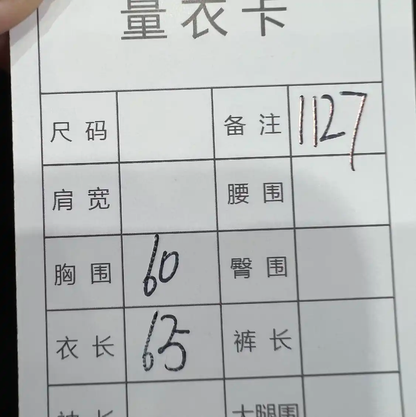 量衣卡
尺码 备注 1127
肩宽 腰围
胸围 60 臀围
衣长 65 裤长
大腿围